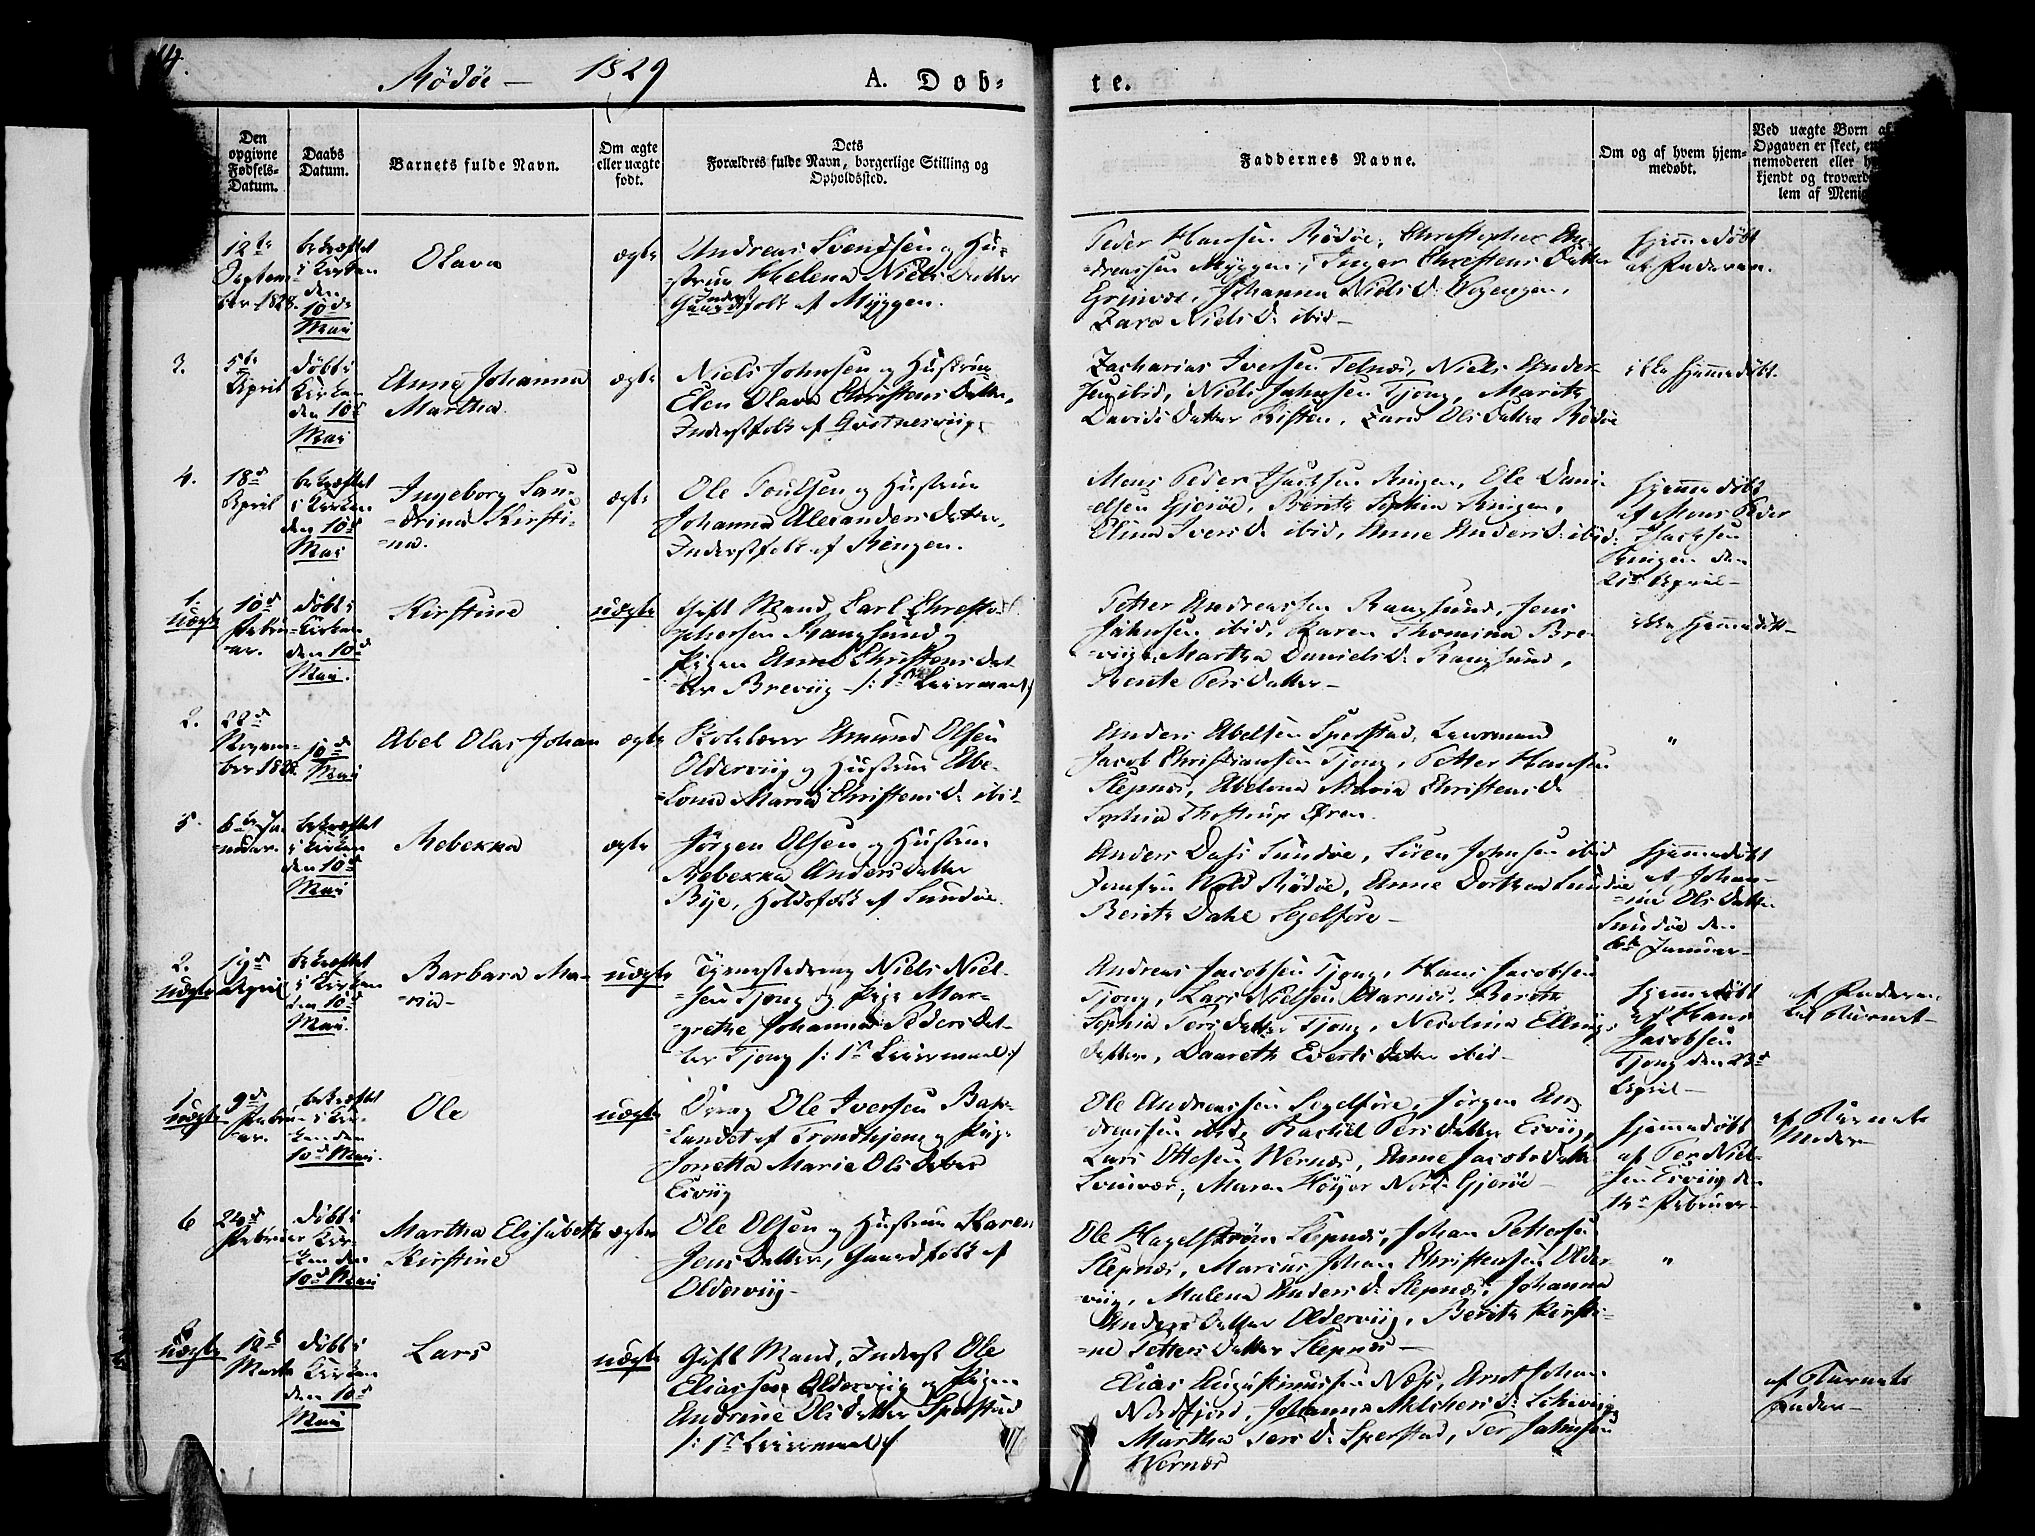 Rödöe — 1829
A. Døb-
te.
Den opgivne Fødsels-Datum.
Daabs Datum.
Barnets fulde Navn.
Om ægte eller uægte født.
Dets Forældres fulde Navn, borgerlige Stilling og Opholdssted.
Faddernes Navne.
Om og af hvem hjem-
medøbt.
Ved uægte Børn af
Opgaven er skeet, en
nemoderen eller
kjendt og troværd
lem af Menig
12te
Septem
ber 1828.
bekræftet
i Kirken
den
10de
Mai
Olava
ægte
Andreas Svendsen og Hu-
strue Helena Niels Datter
Inderst
Gaardfolk af Myggen.
Peder Hansen Rödöe, Christopher An-
dreassen Myggen, Inger Christens Datter
Grinvær, Johanna Niels D.
Zara Niels D. ibid—
Hjemmedöbt
af Faderen.
3.
5te
April
döbt i
Kirken
den 10d
Mai
Anne Johanna
Martha.
ægte
Niels Johnsen og Hustrue
Elen Olava Christens Datter,
Inderstfolk af
Zacharias Iversen Telnæs, Niels Ander-
sen ibid, Niels Johnsen Tjong, Marith
Davids Datter Kisten, Zara Ols Datter Rödöe
ikke Hjemmedöbt.
4.
18d
April
bekræftet
i Kirken
den 10d
Mai
Ingeborg San-
drina Kirsti-
na.
ægte
Ole Poulsen og Hustrue
Johanna Alexanders Datter,
Inderstfolk af Ringen.
Mons Peder Isachsen Ringen, Ole Dani-
elsen Gjeröe, Berith Sophia Ringen,
Elina Ivers D. ibid, Anne Anders D. ibid:
Hjemmedöbt
af Mons Peder
Isachsen
Ringen den
21d April—
1.
uægte
10d
Febru-
ar.
döbt i
Kirken
den 10d
Mai.
Kirstine
uægte
Gift Mand, Carl Christo-
phersen Rangsund og
Pigen Anne Christens Dat-
ter Breviig /: 1ste Leiermaal:/
Petter Andreassen Rangsund, Jens
Johnsen ibid, Karen Thomina Bre-
viig, Martha Daniels D. Rangsund,
Bente Pers Datter—
ikke Hjemmedöbt—
2.
22d
Novem-
ber 1828.
10de
Mai
Abel Olai Johan
ægte
Amund Olsen
Olderviig og Hustrue Abe-
lona Maria Christens D. ibid—
Anders Abelsen Sperstad, Leensmand
Jacob Christiansen Tjong, Petter Hansen
Slepnæs, Abelona Maria Christens D.
Sophia Thostrup Ören.
"
5.
6te Ja-
nuar.
bekræftet
i Kirken
den 10d
Mai
Rebekka
ægte
Jörgen Olsen og Hustrue
Rebekka Anders Datter
Bye, Holdsfolk af Sundöe.
Anders Dass Sundöe, Sören Johnsen ibid
Jomfru Wold Rödöe, Anne Dorthea Sundöe
Berith Dahl Segelföre—
Hjemmedöbt
af Johan-
ne Ols Datter
Sundöe den
6te Januar—
2.
uægte
19d
April
bekræftet
i Kirken
den 10d
Mai.
Barbara Ma-
ria—
uægte
Tjenestedreng Niels Niel-
sen Tjong og Pige Mar-
grethe Johanna Peders Dat-
ter Tjong /: 1ste Leiermaal:/
Andreas Jacobsen Tjong, Hans Jacobsen
Tjong, Lars Nielsen Aarnæs, Berith
Sophia Pers Datter Tjong, Nicolina Ellings
datter, Daareth Everts datter ibid—
Hjemmedöbt
af Hans
Jacobsen
Tjong den 23d
April—
af Faderen
til Barnet—
1.
uægte
9d
Febru-
ar.
bekræftet
i Kir-
ken den
10d Mai.
Ole
uægte
Dreng Ole Iversen Bak-
landet af Trondhjem og Pige
Jonetta Marie Ols Datter
Esviig
Ole Andreassen Segelföre, Jörgen An-
dreassen ibid, Rachel Pers Datter Esviig,
Lars Ottesen Wernæs, Anne Jacobs Datter
Svinvær, Maren Höyer Nord-Gjeröe—
Hjemmedöbt
af Per Niel-
sen Esviig den
14d Februar—
af Barnets
Moder
6
24d
Februar
döbt i
Kir-
ken den
10d Mai
Martha Elisabeth
Kirstine
ægte
Ole Olsen og Hustrue Karen
Jens Datter, Gaardfolk af
Olderviig—
Ole Hagelström Slepnæs, Johan Pettersen
Slepnæs, Marcus Johan Christensen Older-
viig, Malena Anders D. Slepnæs, Johanna
Anders Datter Olderviig, Berith Kirsti-
ne Petters Datter Slepnæs—
"
uægte
12te
Marts
döbt i
Kirken
den 10d
Mai
Lars
uægte
Gift Mand, Inderst Ole
Eliassen Olderviig og Pigen
Andrine Ols Datter Sperstad
/: 1ste Leiermaal:/
Elias Augustinussen Næss, Arnt Johan
Nordfjord, Johanna Melchers D.
Martha Pers D. Sperstad, Per Johnsen
Wernæs
af Barnets
Fader—